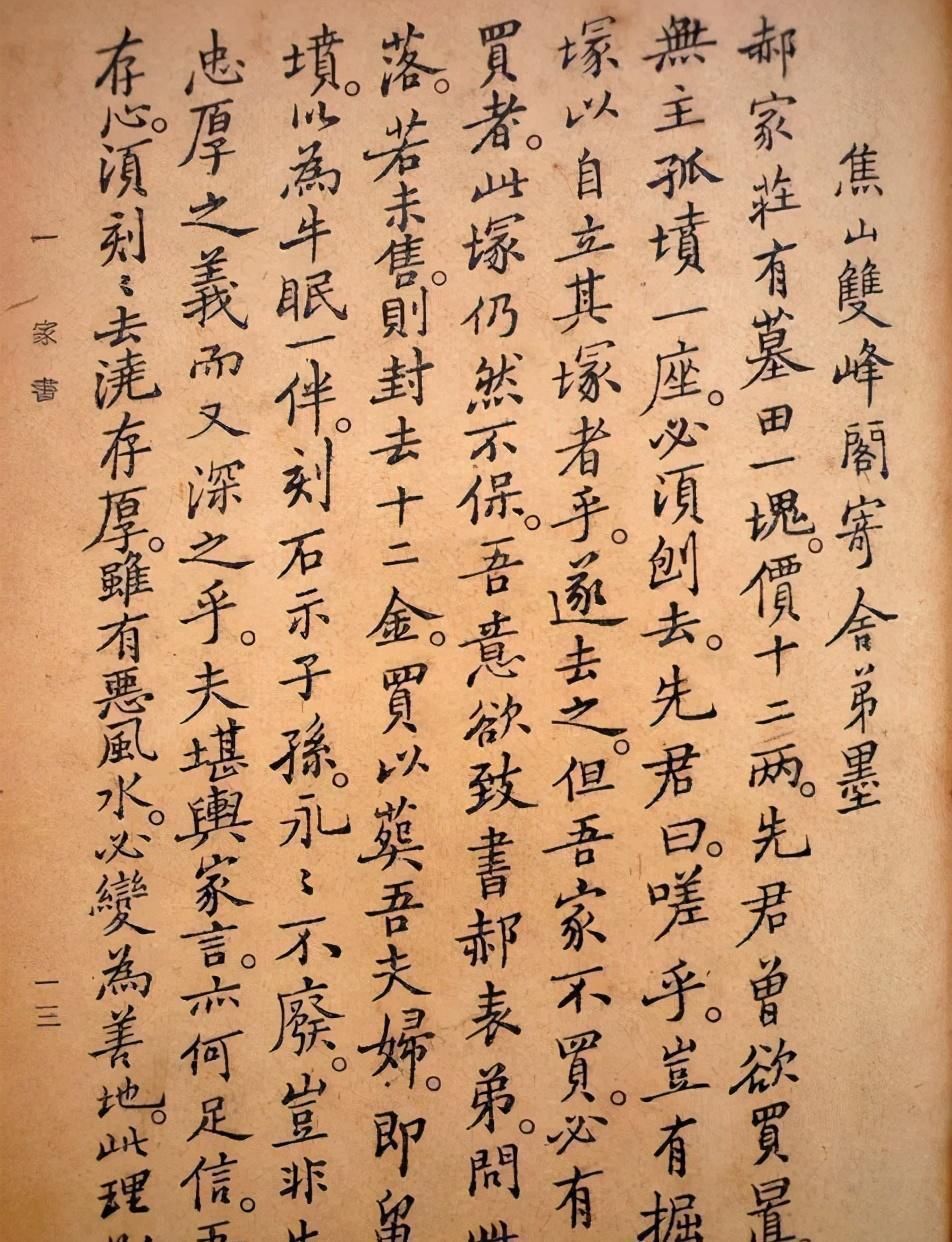 焦山雙峰閣寄舍弟墨
郝家莊有墓田一塊。價十二两。先君曾欲買置。
無主孤墳一座。必須刨去。先君曰。嗟乎。豈有掘
塚以自立其塚者乎。遂去之。但吾家不買。必有
買者。此塚仍然不保。吾意欲致書郝表弟。問此
落。若未售。則封去十二金。買以葬吾夫婦。即留
墳。以為牛眠一伴。刻石示子孫。永〻不廢。豈非
忠厚之義而又深之乎。夫堪輿家言。亦何足信。吾
存心。須刻〻去澆存厚。雖有惡風水。必變為善地。此理
一 家書 一三